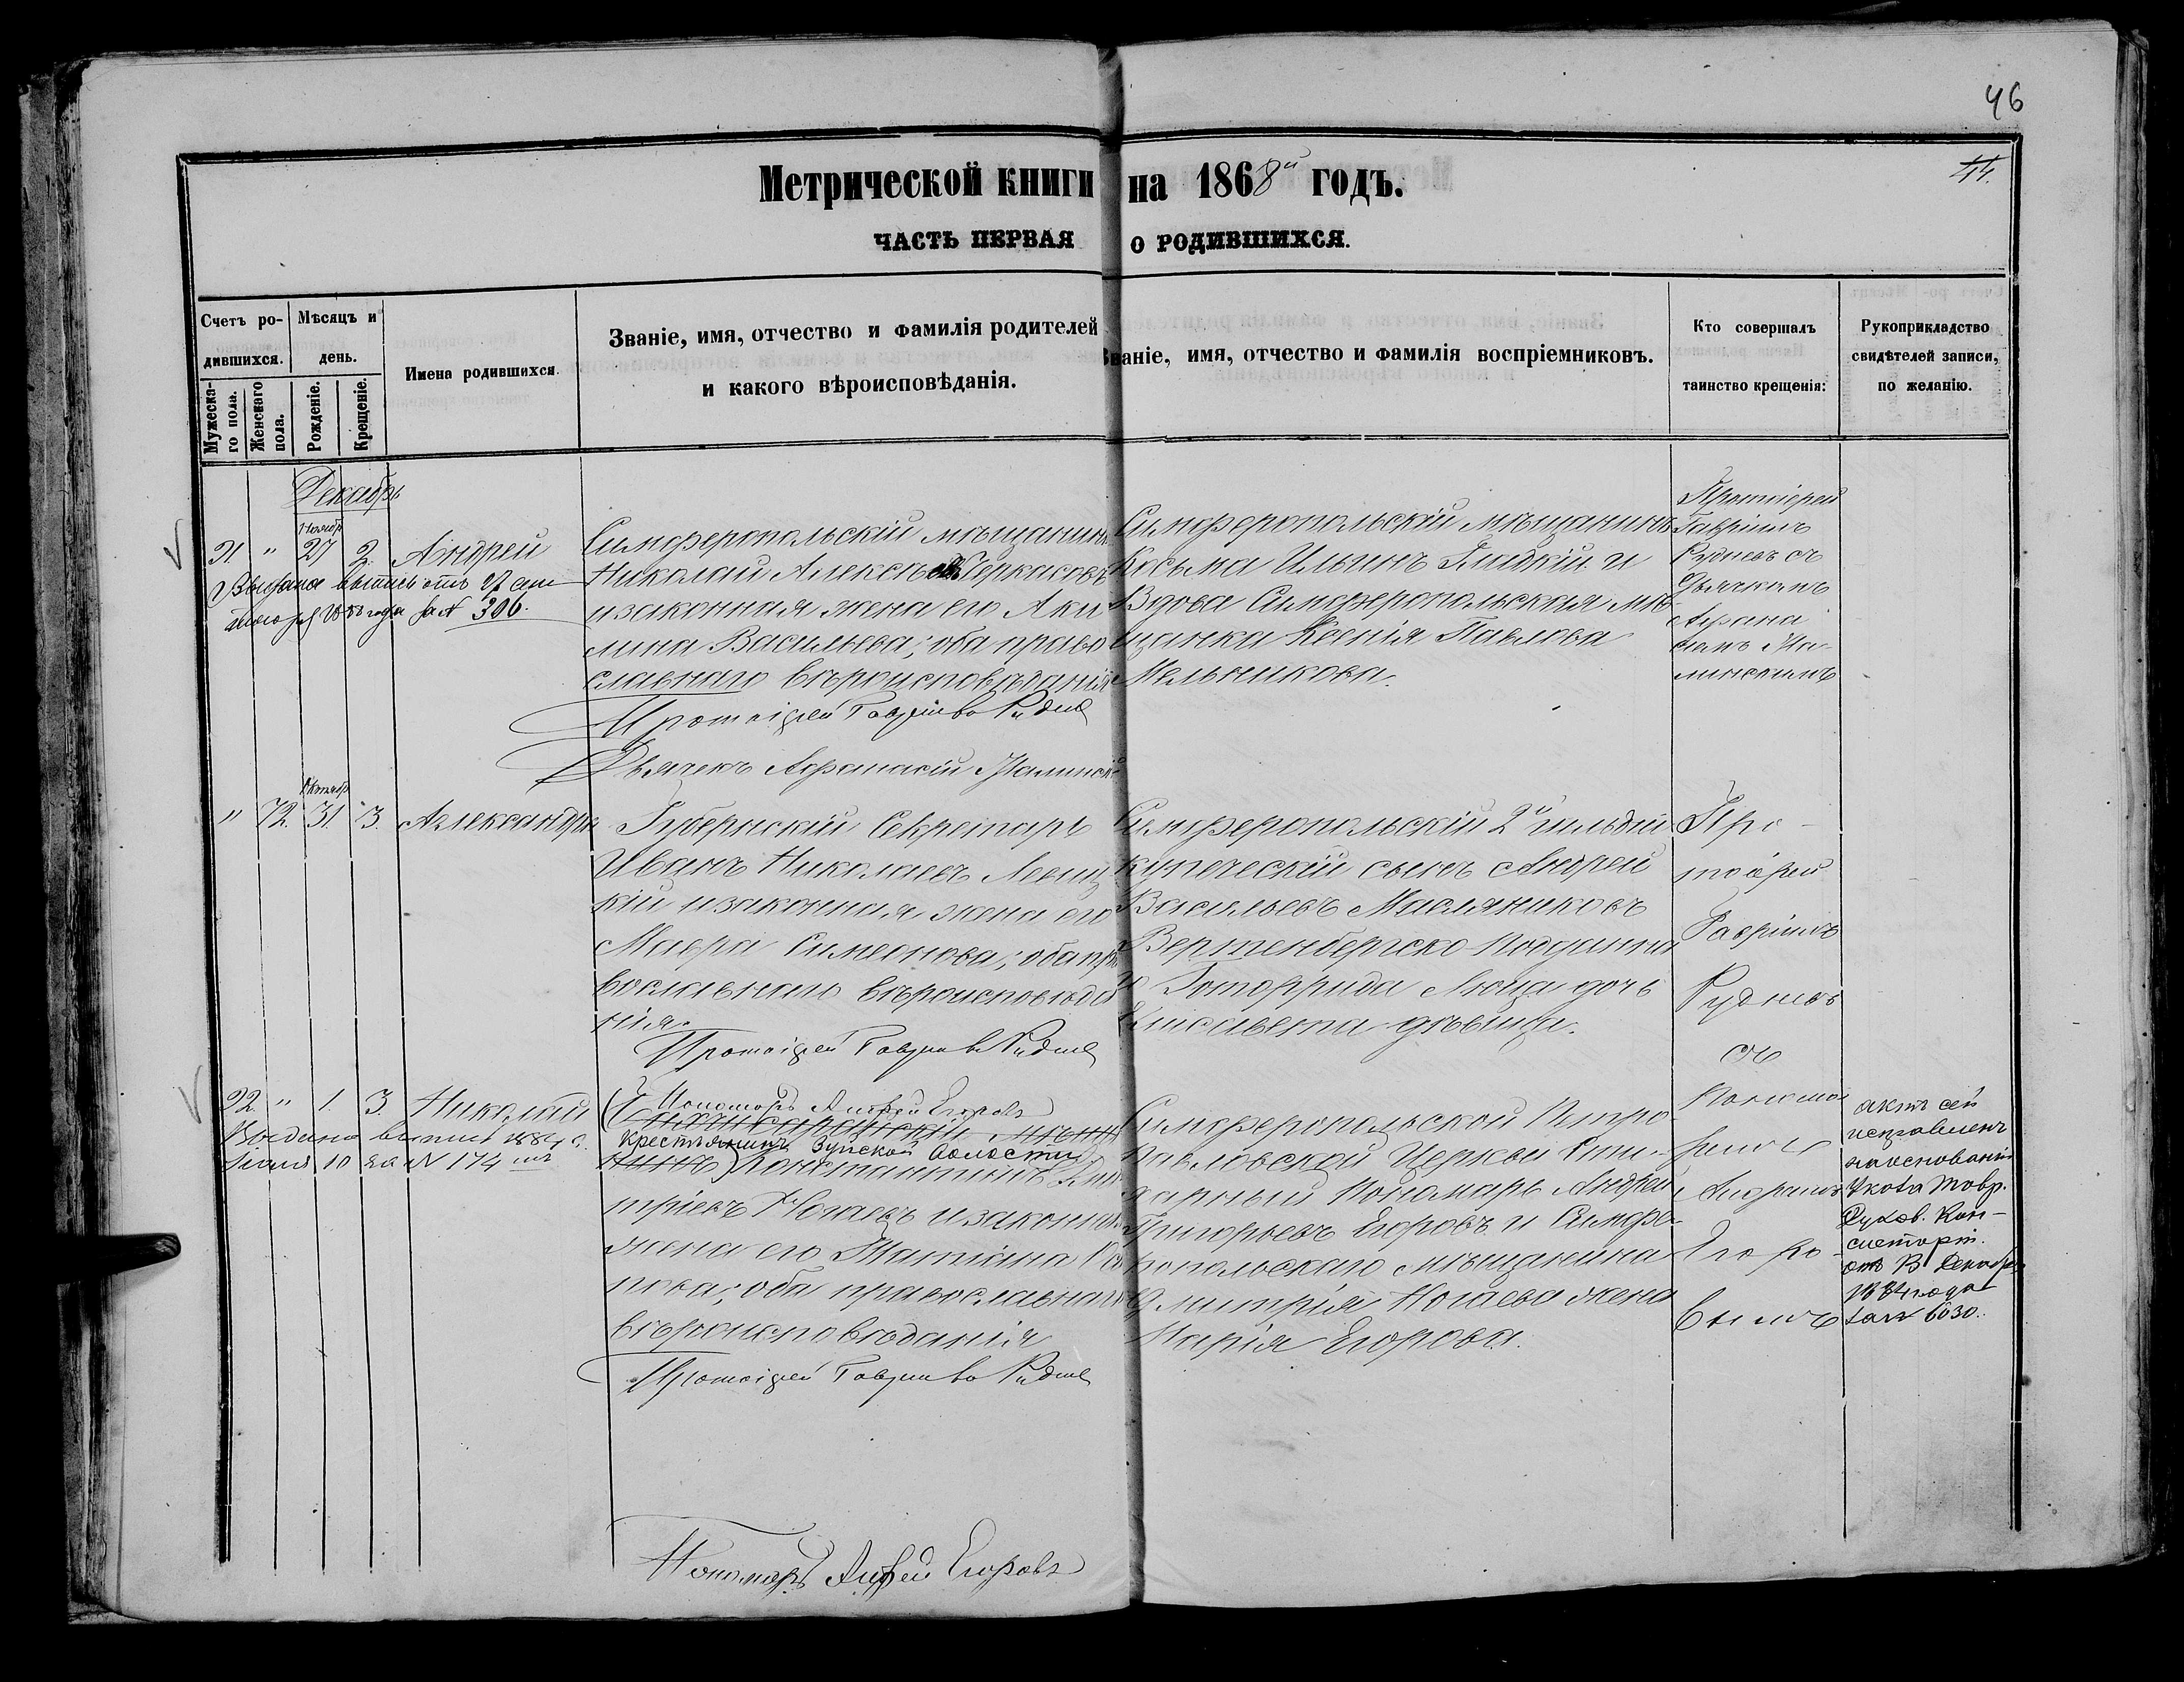 46
44.
Метрической книги на 1868й годъ.
ЧАСТЬ ПЕРВАЯ О РОДИВШИХСЯ.
Счетъ ро-
дившихся.
Мужеска-
го пола.
Женскаго
пола.
Мѣсяцъ и
день.
Рожденіе.
Крещеніе.
Имена родившихся.
Званіе, имя, отчество и фамилія родителей
и какого вѣроисповѣданія.
Званіе, имя, отчество и фамилія воспріемниковъ.
Кто совершалъ
таинство крещенія:
Рукоприкладство
свидѣтелей записи,
по желанію.
Декабрь
Ноябр
" 27 2. Андрей
Выдана выпись отъ
года за № 306.
Симферопольскій мѣщанинъ
Николай Алексѣевъ Черкасовъ
и законная жена его Аки
лина Васильева; оба право
славнаго вѣроисповѣданія
Протоіерей Гавріилъ Руднев
Дьячекъ Афанасій
Симферопольскій мѣщанинъ
Косьма Ильинъ Гладкій и
Вдова Симферопольская мѣ
щанка Ксенія Павлова
Мельникова.
Протоіерей
Гавріилъ
Рудневъ съ
Дьячкомъ
Афана
сіемъ
Октябр
" 72. 31. 3. Александра
Губернскій Секретарь
Иванъ Николаевъ Левиц
кій и законная жена его
Мавра Симеонова; оба пра
вославнаго вѣроисповѣда
нія.
Протоіерей Гавріилъ Руднев
Пономарь Андрей Егоровъ
Симферопольскій 2й гильдіи
купеческій сынъ Андрей
Васильевъ Масляниковъ
и Вертенбергско подданна
го Готфрида Люца дочь
Елисавета дѣвица.
Про-
тоіерей
Гавріилъ
Рудневъ
съ
Понома
ремъ
Андреемъ
Егоро-
вымъ
" 1. 3. Николай
Выдана выпись 188
Іюля 10 за № 174
Крестьянинъ Зуйской Волости
Константинъ Дми
тріевъ Ногаевъ и законная
жена его Татіана Оси
пова; оба православнаго
вѣроисповѣданія
Протоіерей Гавріилъ Руднев
Пономарь Андрей Егоровъ
Симферопольской Петро-
Павловской Церкви
Пономарь Андрей
Григорьевъ Егоровъ и Симфе-
ропольскаго мѣщанина
Дмитрія Ногаева жена
Марія Егорова.
актъ сей
исправленъ
на основаніи
Указа Тавр.
Духов. Кон-
систоріи.
отъ 13 Декабря
1884 года
за № 6030.